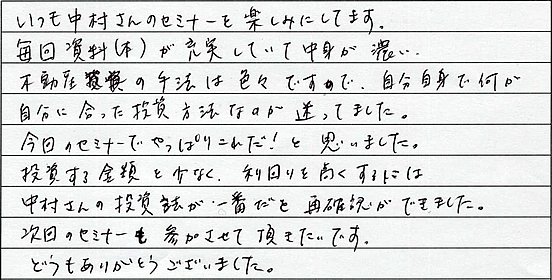 いつも中村さんのセミナーを楽しみにしてます。
毎回資料(本)が充実していて中身が濃い。
不動産投資の手法は色々ですので、自分自身で何が
自分に合った投資方法なのか迷ってました。
今回のセミナーでやっぱりこれだ!と思いました。
投資する金額を少なく、利回りを高くするには
中村さんの投資法が一番だと再確認ができました。
次回のセミナーも参加させて頂きたいです。
どうもありがとうございました。